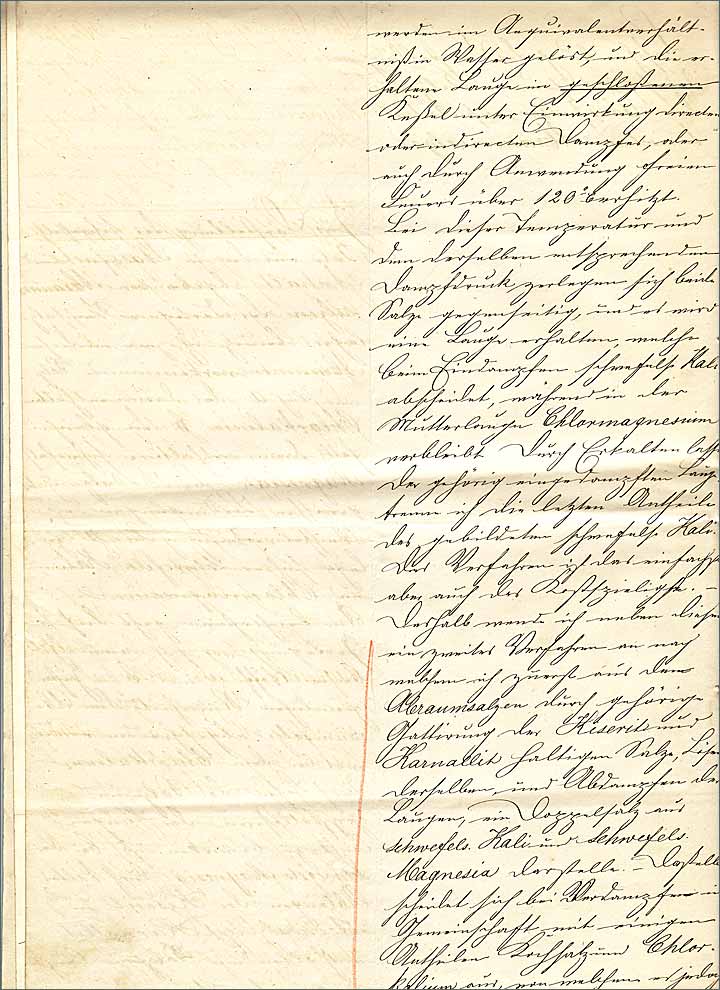 werden im Aequivalentverhält-
niß in Wasser gelöst, und die er-
haltene Lauge im geschloßenen
Keßel unter Einwirkung directen
oder indirecten Dampfes, oder
auch durch Anwendung freien
Feuers über 120° erhitzt.
Bei dieser Temperatur und
dem derselben entsprechenden
Dampfdruck zerlegen sich beide
Salze gegenseitig, und es wird
eine Lauge erhalten, welche
beim Eindampfen schwefels. Kali
abscheidet, während in der
Mutterlauge Chlormagnesium
verbleibt Durch Erkalten
der gehörig eingedampften
trenne ich die letzten Antheile
des gebildeten schwefels. Kali.
Das Verfahren ist das einfachste
aber auch das Kostspieligste.
Deshalb wende ich neben diesem
ein zweites Verfahren an nach
welchem ich zuerst aus den
Abraumsalzen durch gehörige
Gattirung der Kiserit und
Karnallit haltigen Salze,
derselben, und Abdampfen der
Laugen, ein Doppelsalz aus
schwefels. Kali und schwefels.
Magnesia darstelle. – Daßelbe
scheidet sich bei Verdampfen
Gemeinschaft mit einigen
Antheilen Kochsalz und Chlor-
kalium aus, von welchem es jedoch